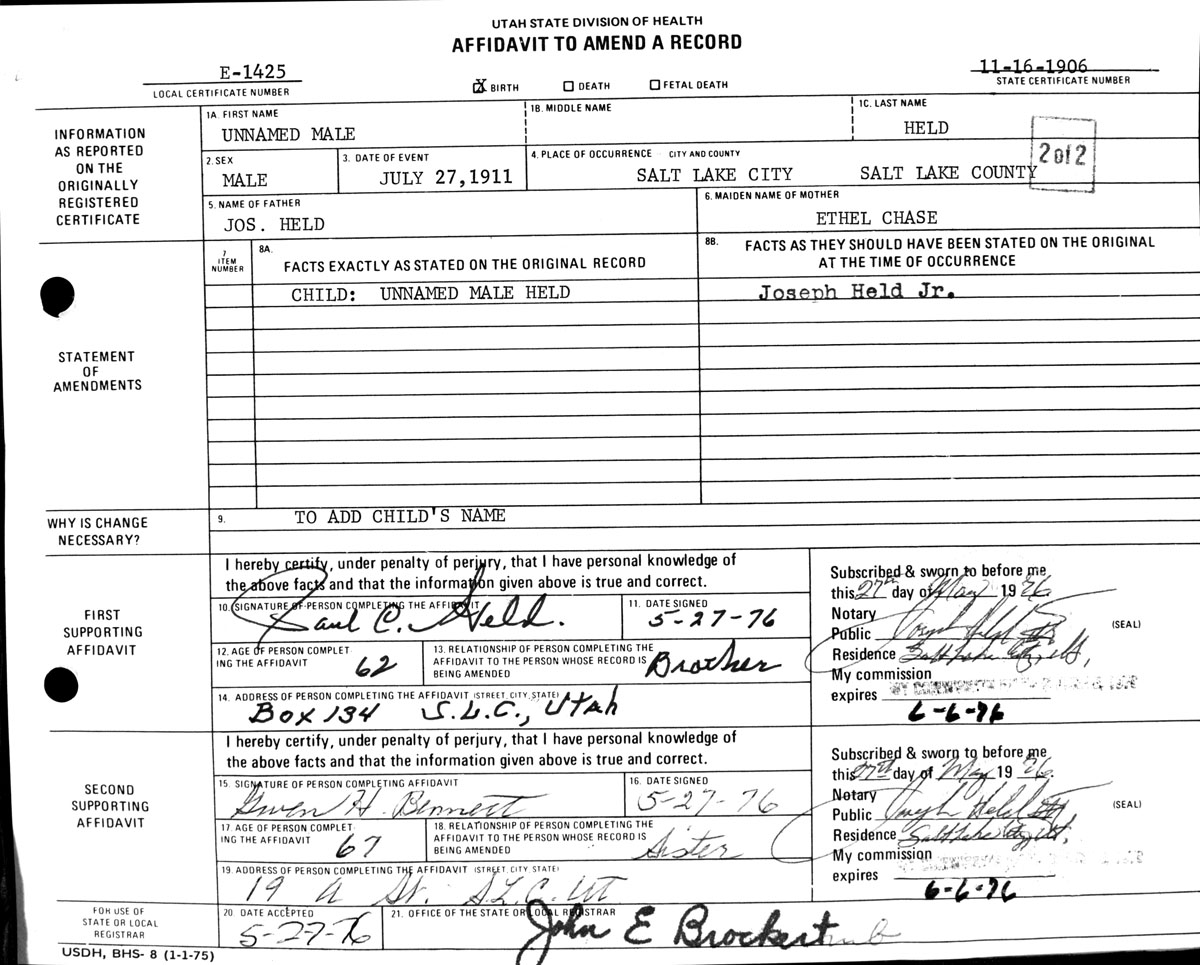 UTAH STATE DIVISION OF HEALTH
AFFIDAVIT TO AMEND A RECORD
E-1425
LOCAL CERTIFICATE NUMBER
X BIRTH DEATH FETAL DEATH
11-16-1906
STATE CERTIFICATE NUMBER
INFORMATION
AS REPORTED
ON THE
ORIGINALLY
REGISTERED
CERTIFICATE
1A. FIRST NAME
UNNAMED MALE
1B. MIDDLE NAME
1C. LAST NAME
HELD
2 of 2
2. SEX
MALE
3. DATE OF EVENT
JULY 27,1911
4. PLACE OF OCCURRENCE CITY AND COUNTY
SALT LAKE CITY SALT LAKE COUNTY
5. NAME OF FATHER
JOS. HELD
6. MAIDEN NAME OF MOTHER
ETHEL CHASE
STATEMENT
OF
AMENDMENTS
7
ITEM
NUMBER
8A.
FACTS EXACTLY AS STATED ON THE ORIGINAL RECORD
8B. FACTS AS THEY SHOULD HAVE BEEN STATED ON THE ORIGINAL
AT THE TIME OF OCCURRENCE
CHILD: UNNAMED MALE HELD
Joseph Held Jr.
WHY IS CHANGE
NECESSARY?
9. TO ADD CHILD'S NAME
FIRST
SUPPORTING
AFFIDAVIT
I hereby certify, under penalty of perjury, that I have personal knowledge of
the above facts and that the information given above is true and correct.
10. SIGNATURE OF PERSON COMPLETING THE AFFIDAVIT
Paul C. Held.
11. DATE SIGNED
5-27-76
12. AGE OF PERSON COMPLET
ING THE AFFIDAVIT
62
13. RELATIONSHIP OF PERSON COMPLETING THE
AFFIDAVIT TO THE PERSON WHOSE RECORD IS
BEING AMENDED
Brother
14. ADDRESS OF PERSON COMPLETING THE AFFIDAVIT (STREET, CITY, STATE)
Box 134 S.L.C., Utah
Subscribed & sworn to before me
this 27th day of May 19 76
Notary
Public Joseph Held
(SEAL)
Residence Salt Lake City
My commission
expires
6-6-76
SECOND
SUPPORTING
AFFIDAVIT
I hereby certify, under penalty of perjury, that I have personal knowledge of
the above facts and that the information given above is true and correct.
15. SIGNATURE OF PERSON COMPLETING AFFIDAVIT
Gwen H. Bennett
16. DATE SIGNED
5-27-76
17. AGE OF PERSON COMPLET
ING THE AFFIDAVIT
67
18. RELATIONSHIP OF PERSON COMPLETING THE
AFFIDAVIT TO THE PERSON WHOSE RECORD IS
BEING AMENDED
Sister
19. ADDRESS OF PERSON COMPLETING THE AFFIDAVIT (STREET, CITY, STATE)
19 A St. S.L.C. Ut
Subscribed & sworn to before me
this 27th day of May 19 76
Notary
Public Joseph Held
(SEAL)
Residence Salt Lake City
My commission
expires
6-6-76
FOR USE OF
STATE OR LOCAL
REGISTRAR
20. DATE ACCEPTED
5-27-76
21. OFFICE OF THE STATE OR LOCAL REGISTRAR
John E Brockert
USDH, BHS- 8 (1-1-75)